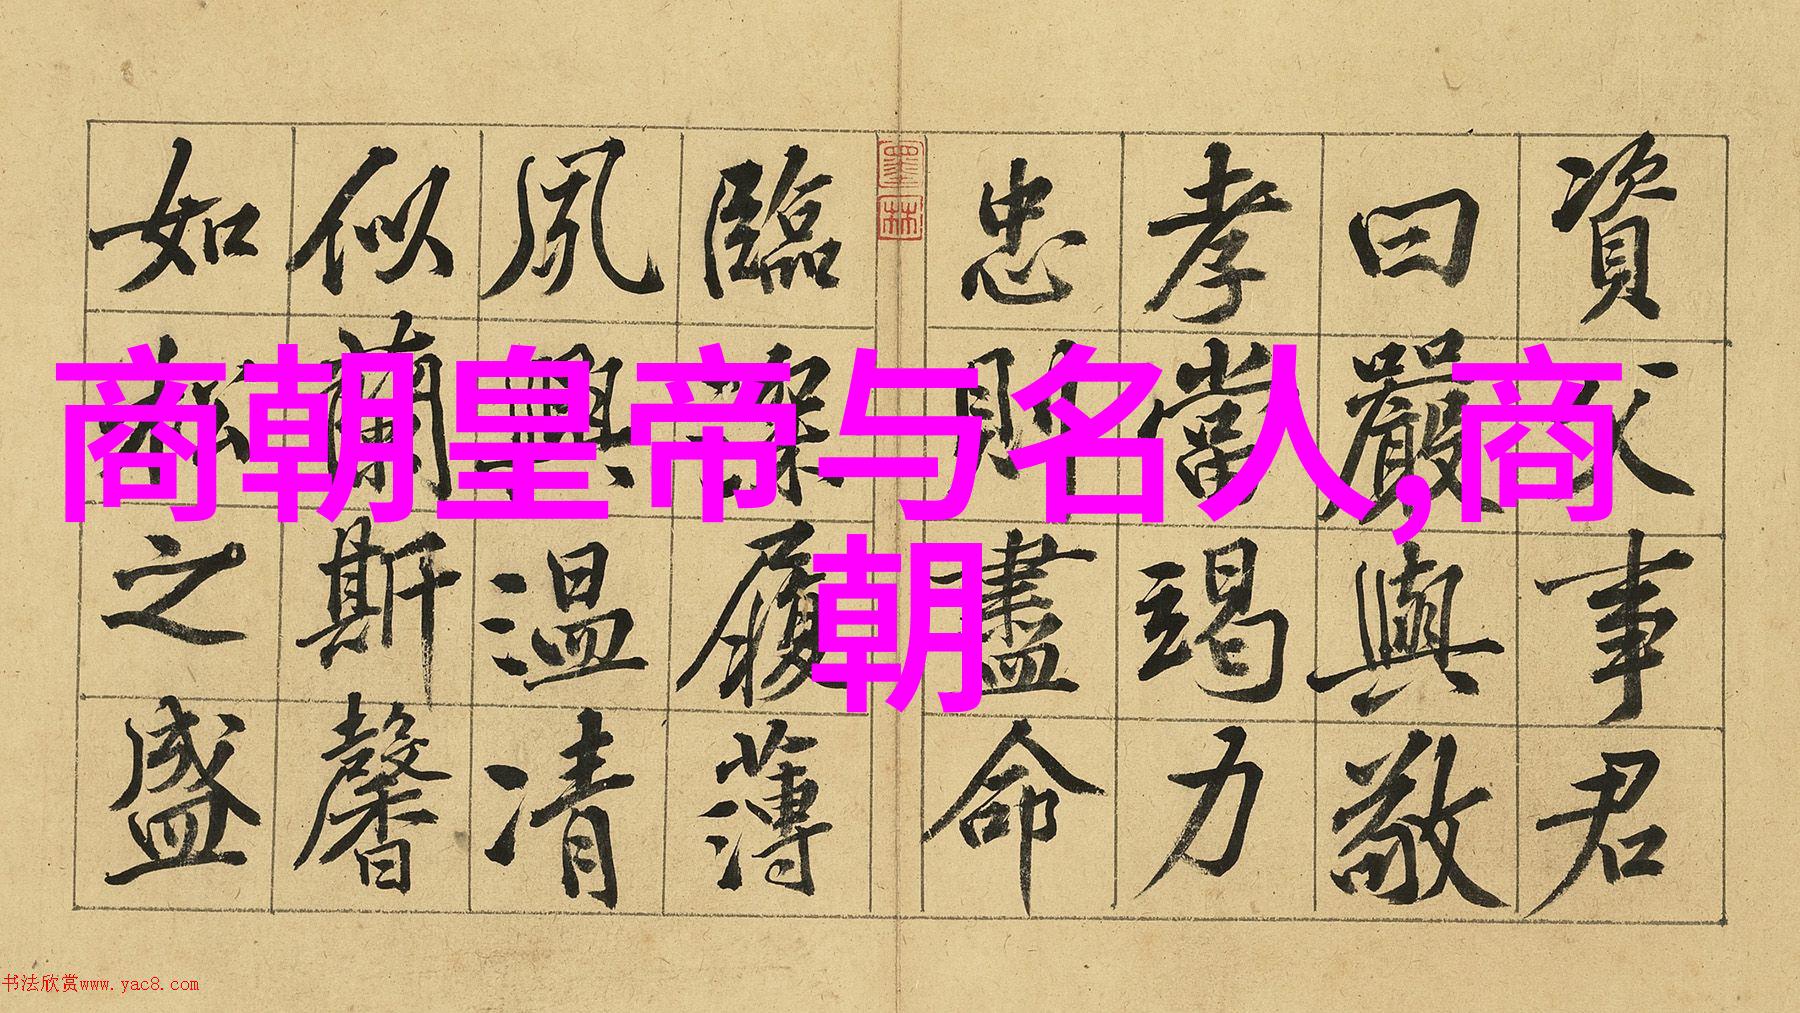 商朝皇帝与名人,商
朝
資父事君
曰嚴與敬
孝當竭力
忠則盡命
臨深履薄
夙興温凊
似蘭斯馨
如松之盛
墨林
书法欣赏www.yac8.com